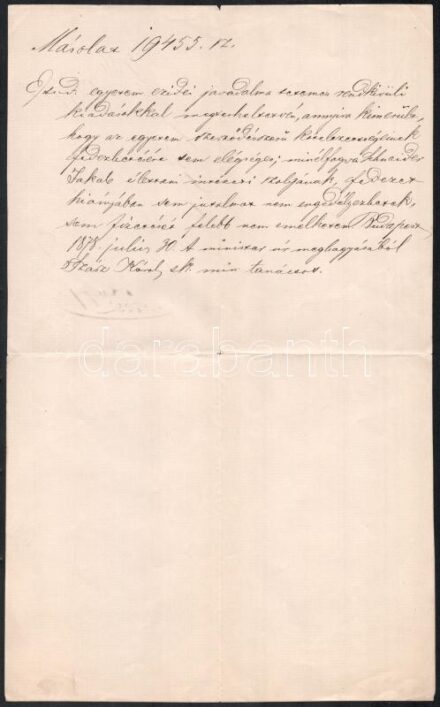 Másolat 19455. sz.
egyetem ezidei javadalma számos rendkívüli
kiadásokkal megterheltetvén, annyira kimerült,
hogy az egyetem szerződésszerű kötelezettségeinek
fedezhetésére sem elégséges; minélfogva Schneider
Jakab élettani intézeti szolgának, fedezet
hiányában sem jutalmat nem engedélyezhetek,
sem fizetését felebb nem emelhetem. Budapest,
1878. július 30. A miniszter úr meghagyásából
Szász Károly sk. min tanácsos.
darabanth